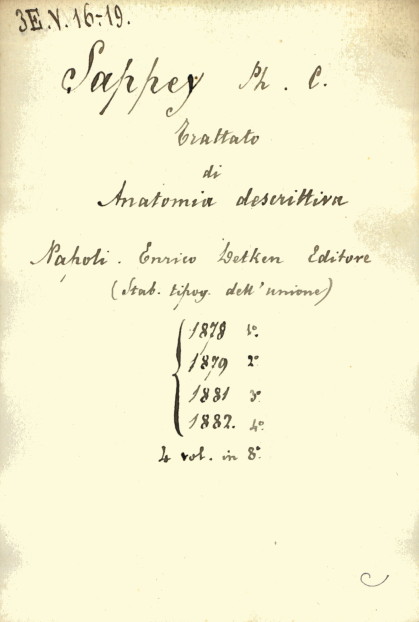 3E.V.16-19.
Sappey Ph. C.
Trattato
di
Anatomia descrittiva
Napoli. Enrico Detken Editore
(Stab. tipog. dell'unione)
1878 1º
1879 2º
1881 3º
1882. 4º
4 vol. in 8º